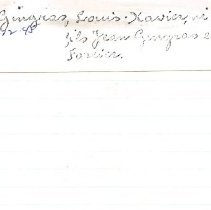 Gingras, Louis-Xavier, ni
fils Jean Gingras e
Fortier.